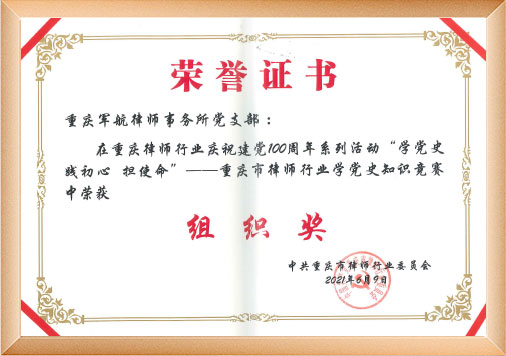 荣誉证书
重庆军航律师事务所党支部：
在重庆律师行业庆祝建党100周年系列活动“学党史
践初心 担使命”——重庆市律师行业学党史知识竞赛
中荣获
组织奖
中共重庆市律师行业委员会
2021年6月9日